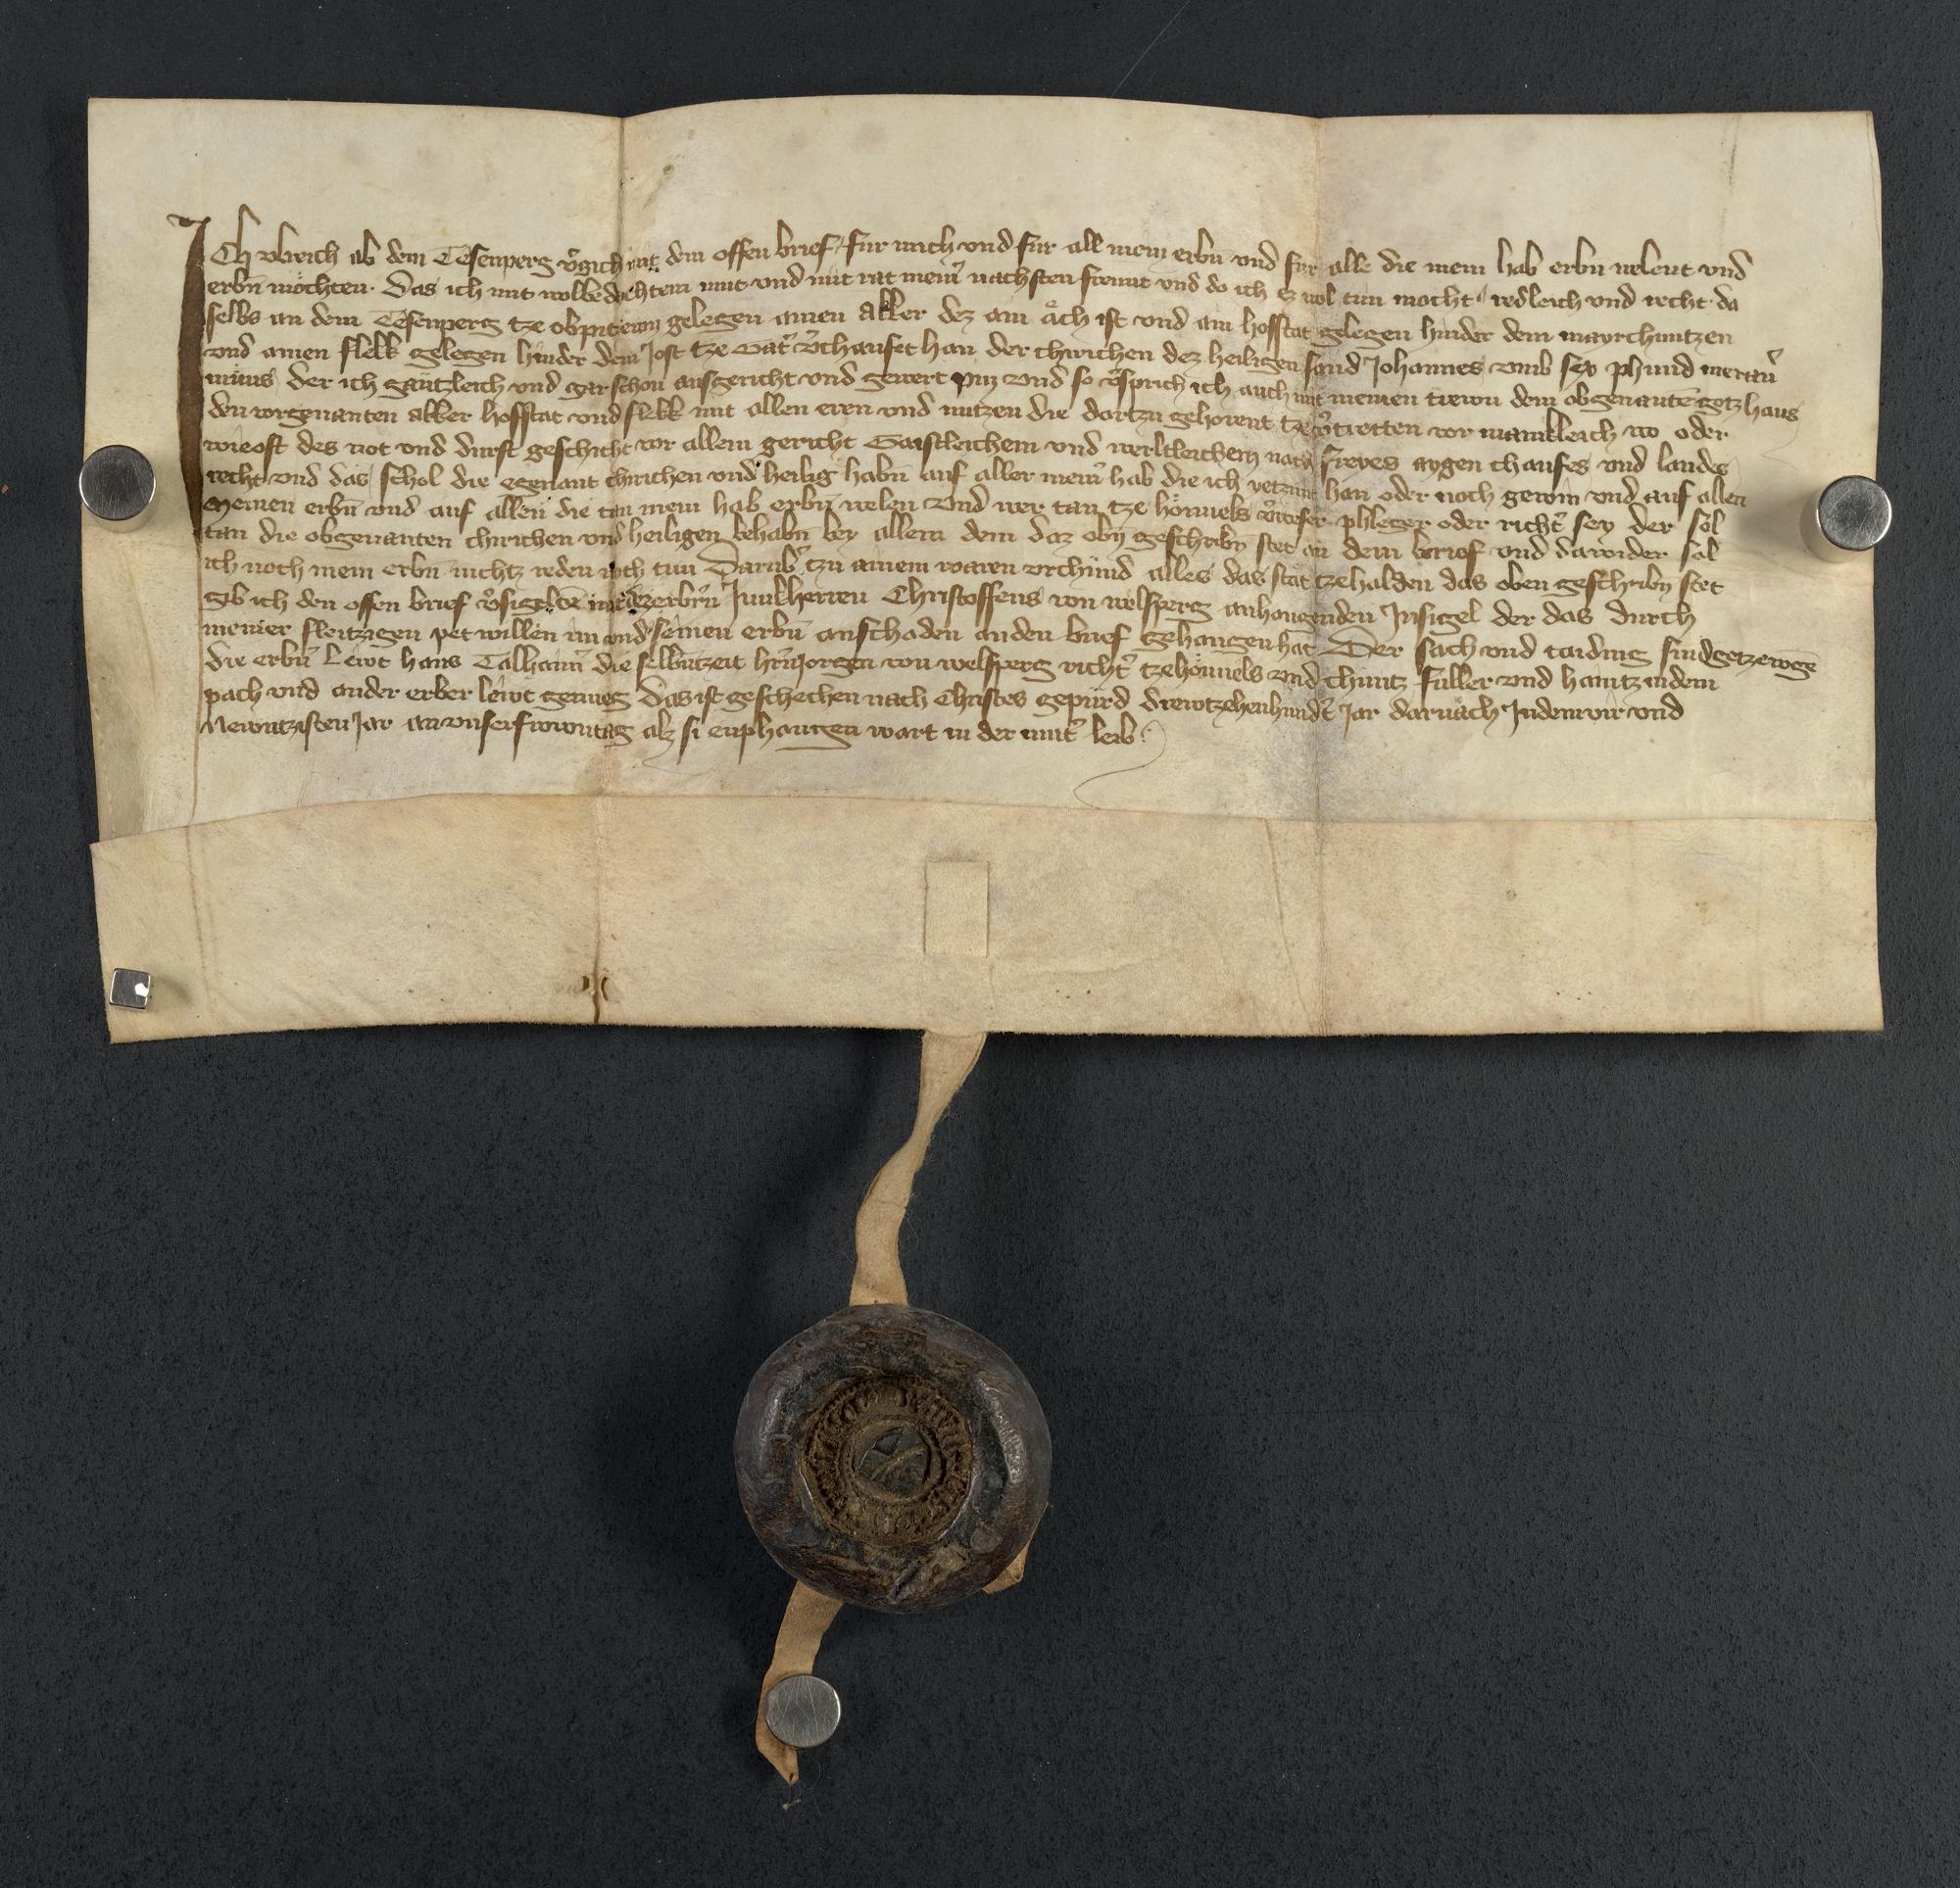 Ich vlreich ab dem Tesenperg v͛gich mit dem offen brief / fur mich vnd fur all mein erbn̄ vnd fur alle die mein hab erbn̄ welent vnd
erbn̄ möchten. Das ich mit wolbedochtem mut vnd mit rat mein͛ nachsten frewnt vnd do ich ez wol tun mocht / redleich vnd recht do
selbs an dem Tesenperg tze gelegen ainen Akker dez ain ist vnd ain hofstat gelegen hinder dem mayrchuntzen
vnd ainen flekk gelegen hinder dem Jost tze v͛chaufet han der chirichen dez heiligen sand Johannes vmb sex phund meran͛
müns der ich gäntzleich vnd gar schon ausgericht vnd gewert pin vnd so v͛sprich ich auch mit meinen trewn dem obgenantē getzhaus
den vorgenanten akker hofstat vnd flekk mit allen eren vnd nutzen die dortzu gehorent tze v͛tretten vor mainkleich wo oder
wie oft des not vnd durft geschicht vor allem gericht Gaistleichem vnd werltleichem nach freyes aygen chaufes vnd landes
recht vnd das schol die egenant chirichen vnd heilig habn̄ auf aller mein͛ hab die ich yetzunt han oder noch gewin vnd auf allen
meinen erbn̄ vnd auf allen die tan mein hab erbn̄ welen vnd wer tan tze höuuels v͛weser phleger oder richt͛ sey der sol
tan die obgenanten chirichen vnd heiligen behabn̄ bey allem dem daz obn̄ geschribn̄ stet an dem brief vnd dawider sol
ich noch mein erbn̄ nichtz reden noch tun Darub͛ tzu ainem waren vrchünd alles das stät tzehalden das oben geschribn̄ stet
gib ich den offen brief v͛sigeltē mit dez erbr͛n Junkherren Christoffens von welsperg anhangenden Insigel der das durch
meiner fleitzigen pet willen im vnd seinen erbn̄ anschaden an den brief gehangen hat Der sach vnd taiding sind getzewgē
die erbn̄ Lewt hans Talhaim͛ die selbn̄ tzeit hr̄n Jorgen von welsperg richt͛ tze höuuels vnd chuntz fuller vnd haintz in dem
pach vnd ander erber lewt genueg Das ist geschechen nach Christes gepürd drewtzehenhund͛t Jar darnach In dem vir vnd
Newntzisten Jar an vnser frowntag alz si enphangen wart in der mut͛ leib